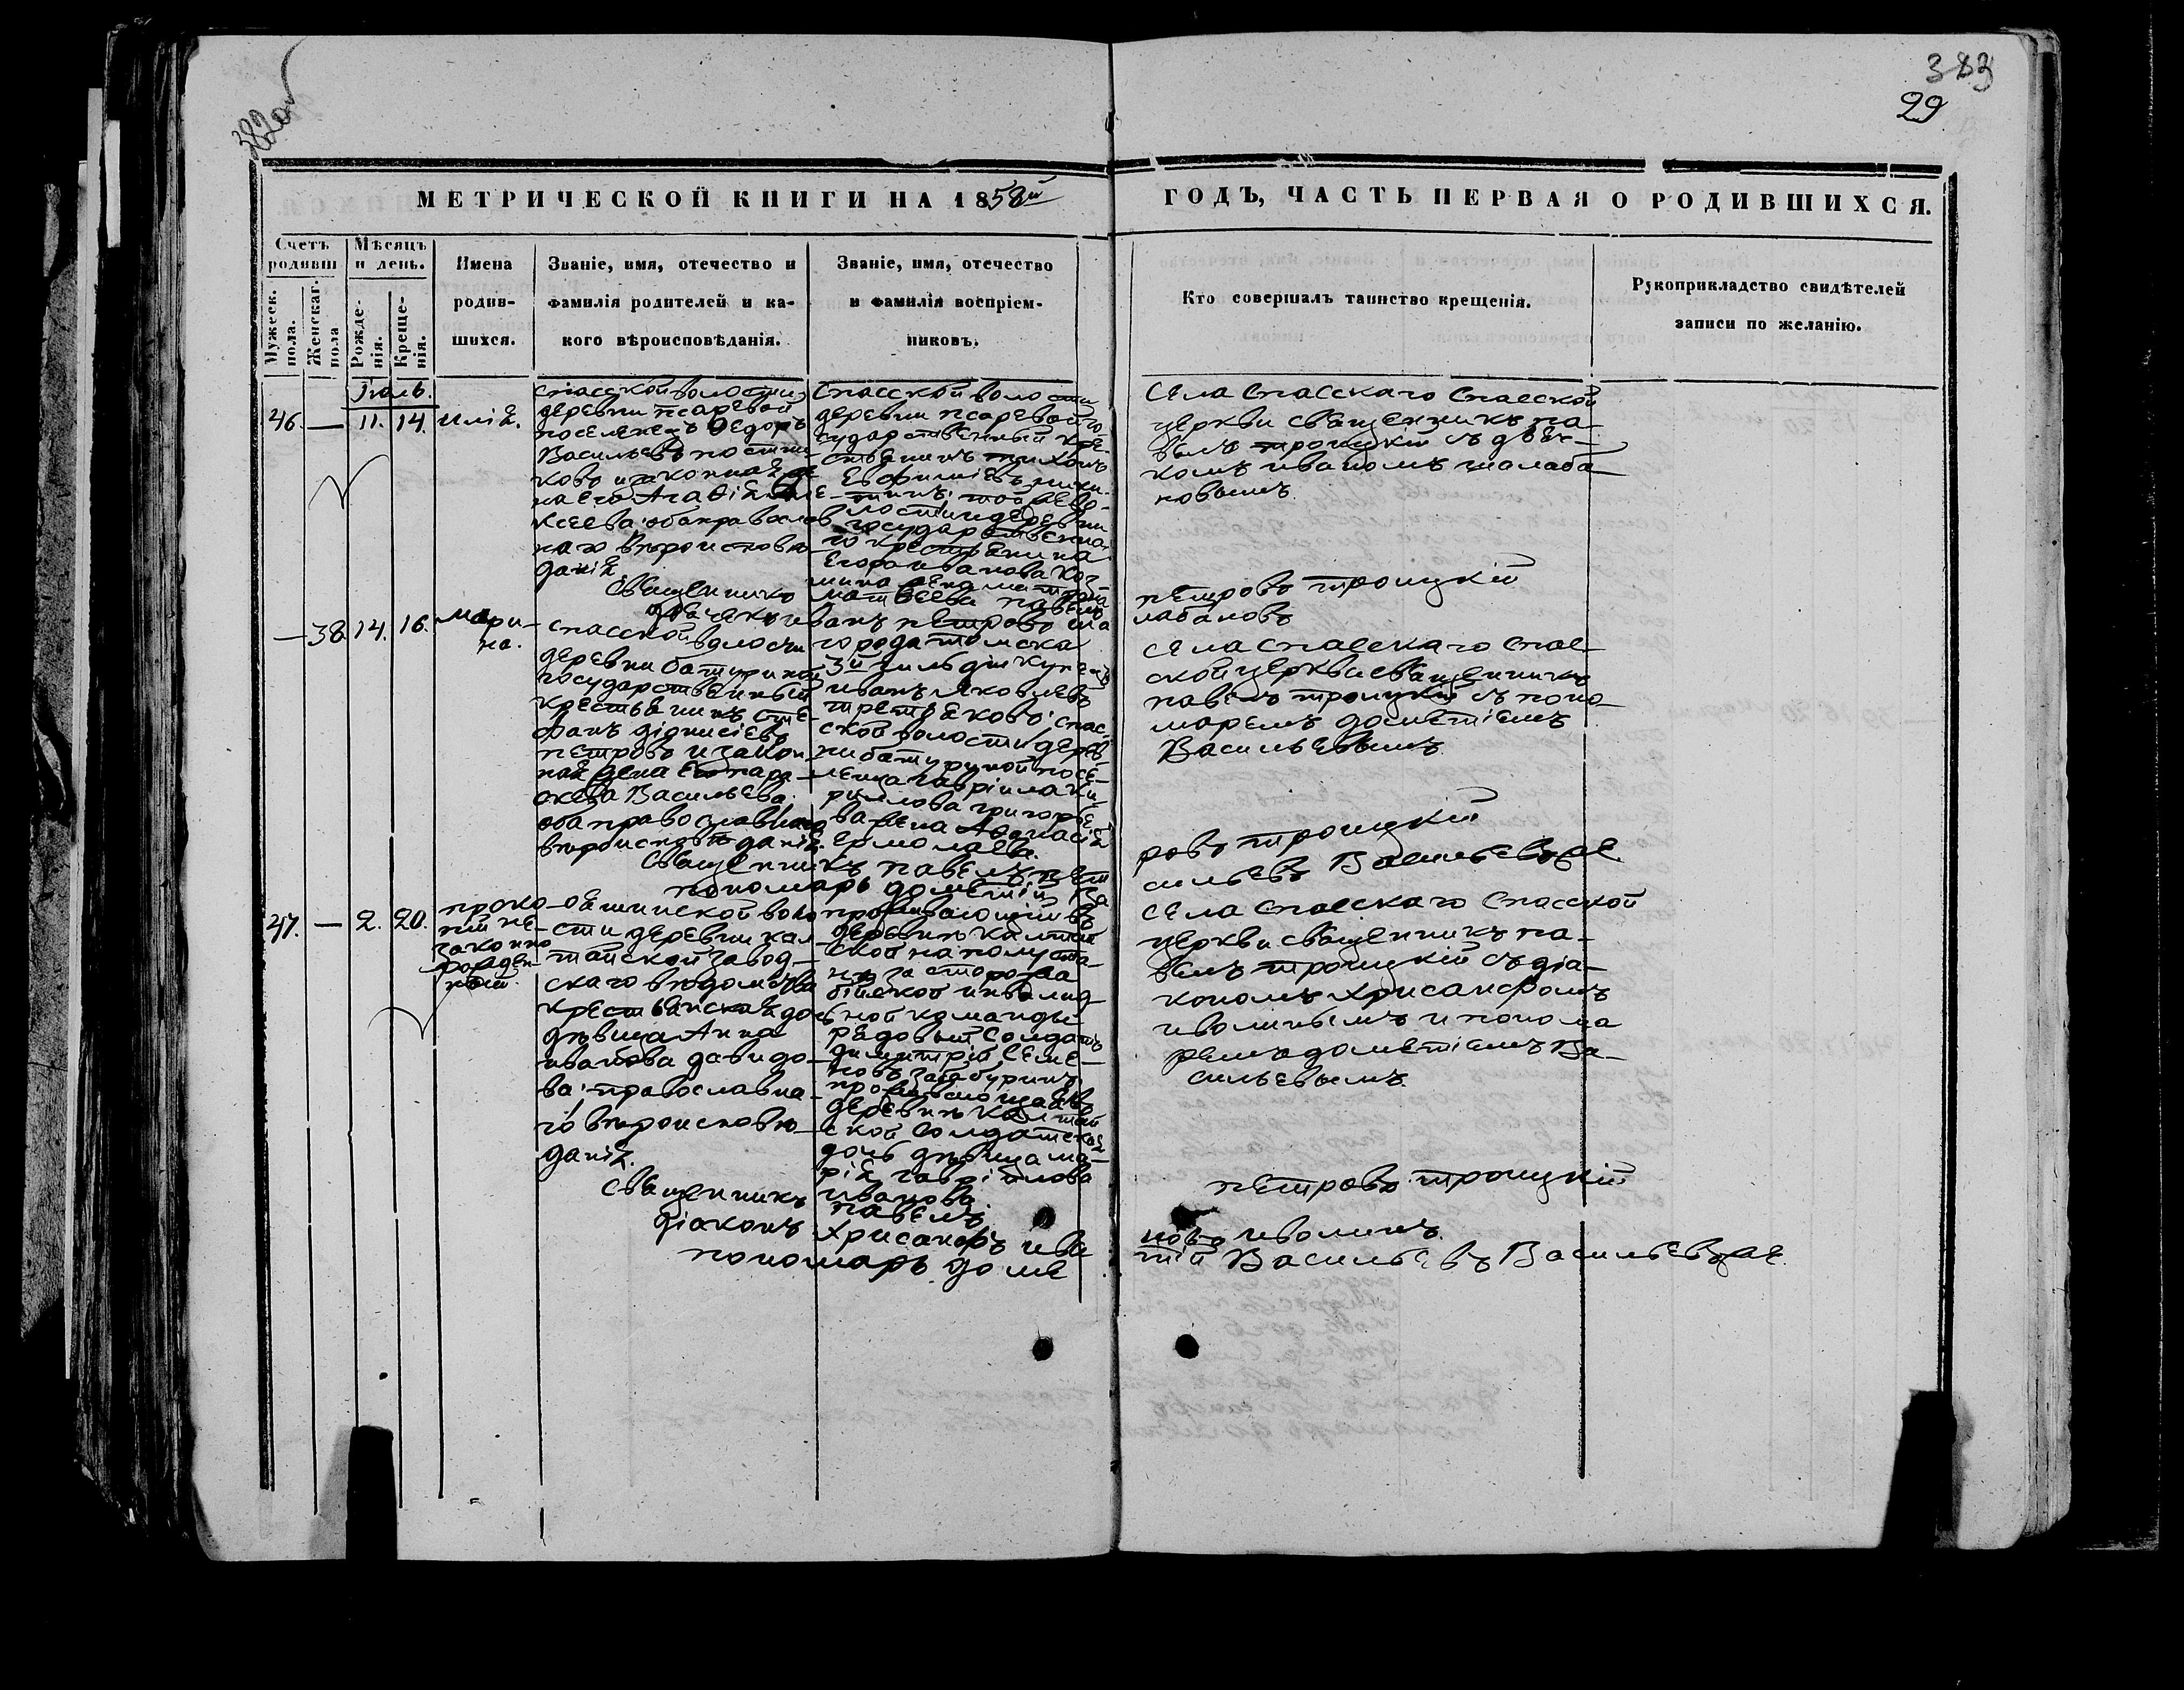 382об
383
29
МЕТРИЧЕСКОЙ КНИГИ НА 1858й
ГОДЪ, ЧАСТЬ ПЕРВАЯ О РОДИВШИХСЯ.
Счетъ родивш
Мужеск. пола.
Женскаг. пола
Мѣсяцъ и день.
Рожде-нія.
Креще-нія.
Имена
родив-
шихся.
Званіе, имя, отечество и
фамилія родителей и ка-
кого вѣроисповѣданія.
Званіе, имя, отечество
и фамилія воспріем-
никовъ.
Кто совершалъ таинство крещенія.
Рукоприкладство свидѣтелей
записи по желанію.
Іюль.
46. — 11. 14. Илія.
спасской волости
деревни псаревой
поселенецъ Ѳедоръ
Васильевъ постни-
ковъ и законная же-
на его Агафія Але-
ксеева: оба православ
наго вѣроисповѣ
данія
Спасской волости
деревни псаревой го-
сударственный кре-
стьянинъ тихонъ
Евфиміевъ
той же во-
лости и деревни
государственна-
го крестьянина
Егора иванова
жена
матвеева
села Спасскаго Спасской
церкви священникъ па-
велъ троицкій съ дьяч-
комъ иваномъ шалаба
новымъ.
Священникъ павелъ петровъ троицкій
дьячекъ иванъ петровъ шалабановъ
— 38. 14. 16. Мари-
на.
спасской волости
деревни батуриной
государственный
крестьянинъ сте-
фанъ діонисіевъ
петровъ и закон
ная жена его пара-
скева Васильева:
оба православнаго
вѣроисповѣданія.
города томска
3й гильдіи купецъ
иванъ Яковлевъ
третьяковъ: спас-
ской волости дерев-
ни батуриной посе-
ленца гавріила ки-
рилова григорье
ва жена Афанасія
ермолаева.
села спасскаго спас
ской церкви священникъ
павелъ троицкій съ поно-
маремъ дометіемъ
Васильевымъ
Священникъ павелъ петровъ троицкій
пономарь дометій Васильевъ Васильевъ же.
47. — 2. 20. проко
пій не-
законно
рожден-
ный.
ояшинской воло
сти деревни кал
тайской завод-
скаго вѣдомства
крестьянская дочь
дѣвица Анна
иванова давидо-
ва: православна-
го вѣроисповѣ-
данія.
проживающій въ
деревнѣ калтай
ской на полуста-
нкѣ за сторожа
бійской инвалид
ной команды
рядовый солдатъ
димитрій Семе-
новъ забуринъ:
проживающая въ
деревнѣ калтай
ской солдатская
дочь дѣвица ма-
рія гавріилова
иванова.
села спасскаго спасской
церкви священникъ па-
велъ троицкій съ діа-
кономъ хрисанфомъ
иволинымъ и понома
ремъ дометіемъ Ва-
сильевымъ.
Священникъ павелъ петровъ троицкій
діаконъ хрисанфъ ивановъ иволинъ.
пономарь дометій Васильевъ Васильевъ же.